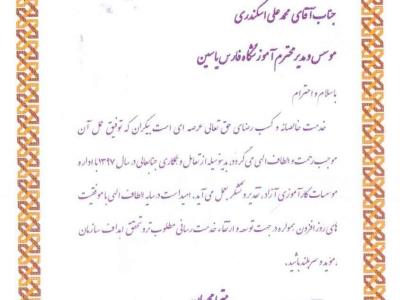 جناب آقای محمد علی اسکندری
موسس و مدیر محترم آموزشگاه فارس یاسین
باسلام و احترام
خدمت خالصانه و کسب رضای حق تعالی عرصه ای است بیکران که توفیق عمل آن
موجب رحمت و الطاف الهی می گردد. بدینوسیله از تعامل و همکاری جنابعالی در سال ۱۳۹۷ با اداره
موسسات کارآموزی آزاد، تقدیر و تشکر بعمل می آید. امید است در سایه الطاف الهی با موفقیت
های روز افزون همواره در جهت توسعه و ارتقاء خدمت رسانی مطلوب تر و تحقق اهداف سازمان
، موید و سربلند باشید.